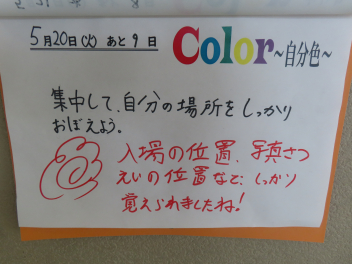 5月20日(火) あと9日
Color~自分色~
集中して、自分の場所をしっかり
おぼえよう。
入場の位置、写真さつ
えいの位置など、しっかり
覚えられましたね!